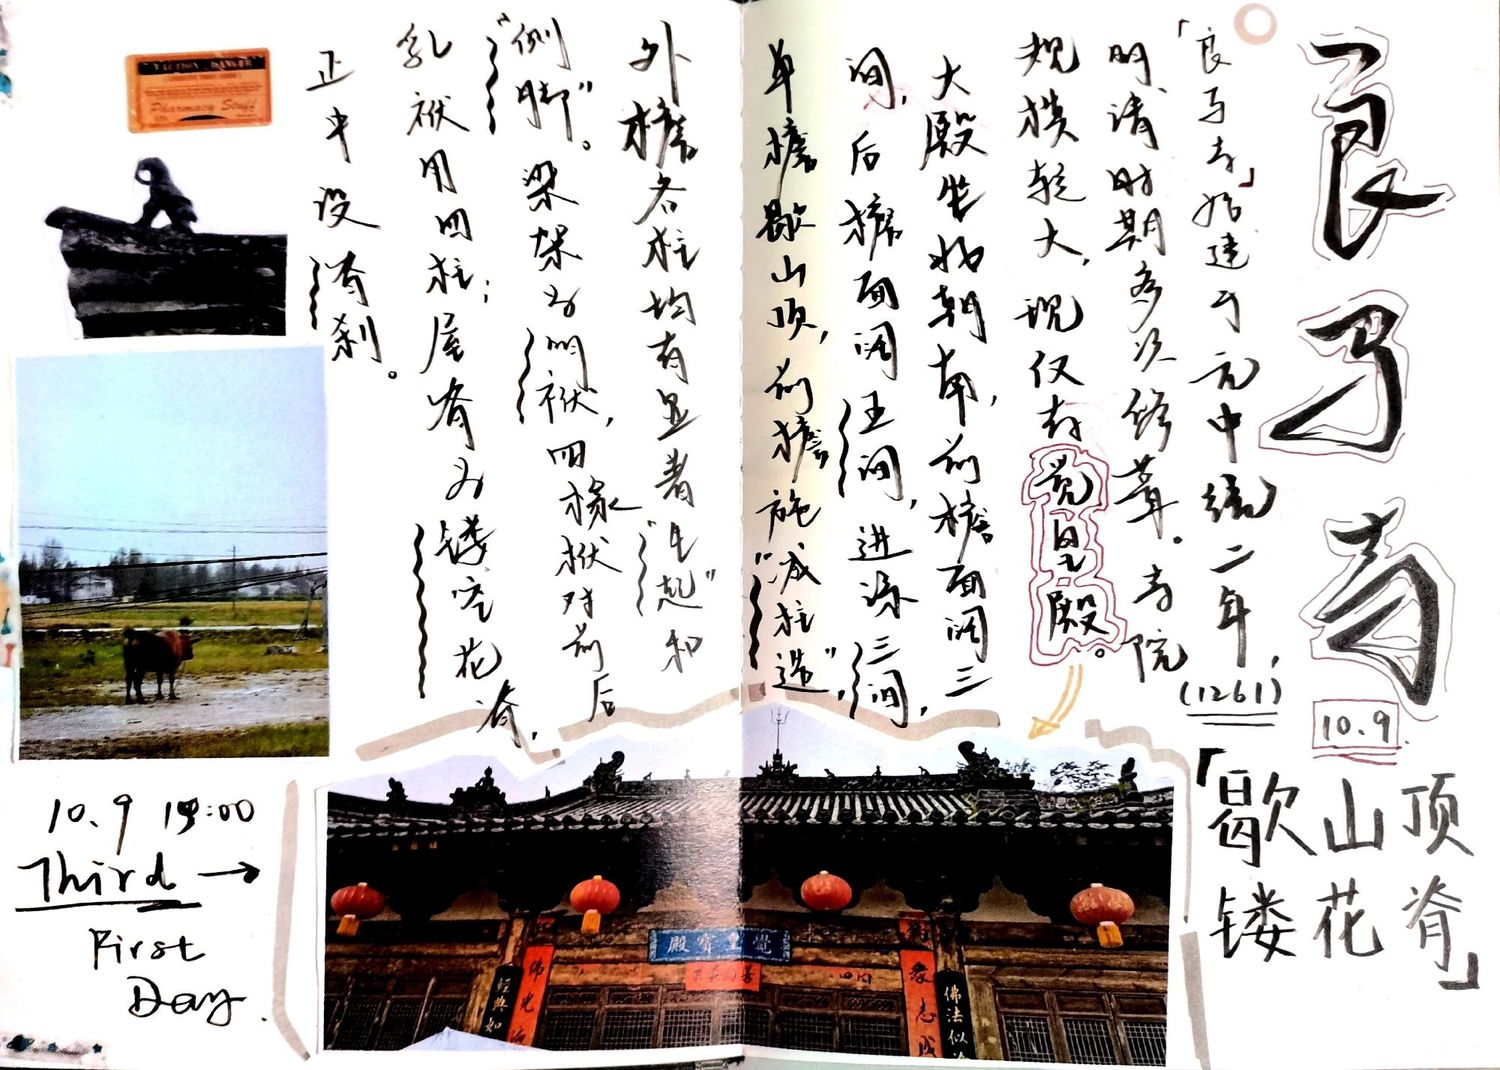 良马寺
10.9
「歇山顶
镂花脊」
「良马寺」始建于元中统二年,
(1261)
明、清时期多次修葺。寺院
规模较大,现仅存觉皇殿。
大殿坐北朝南,前檐面阔三
间,后檐面阔五间,进深三间,
单檐歇山顶,前檐施“减柱造”,
外檐各柱均有显著“生起”和
“侧脚”。梁架为明栿,四椽栿对前后
乳栿用四柱;屋脊为镂空花脊,
正中设脊刹。
Pharmacy Stuff
10.9 19:00
Third →
First
Day.
殿寶皇覺
佛光
經典如
衆志成
佛法似